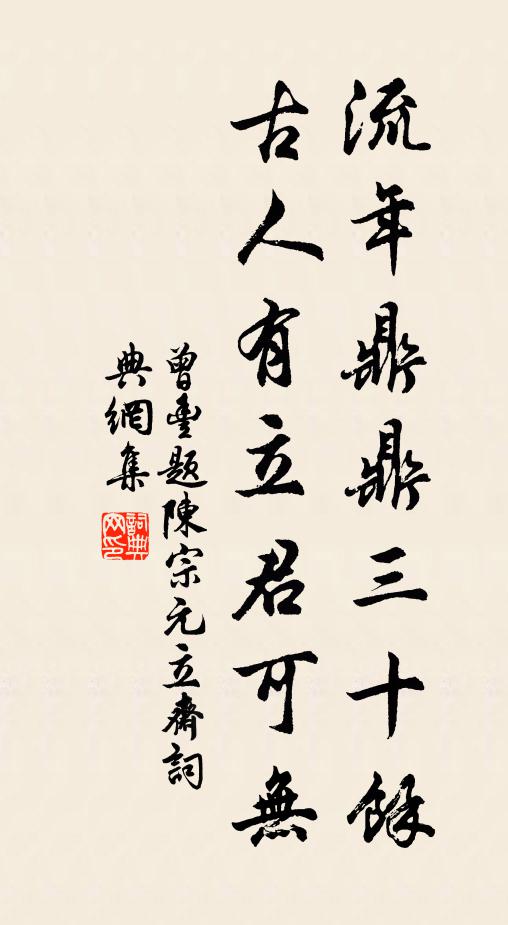 流年鼎鼎三十餘
古人有立君可無
曾豐題陳宗元立齋詞
典網集
詞典網印